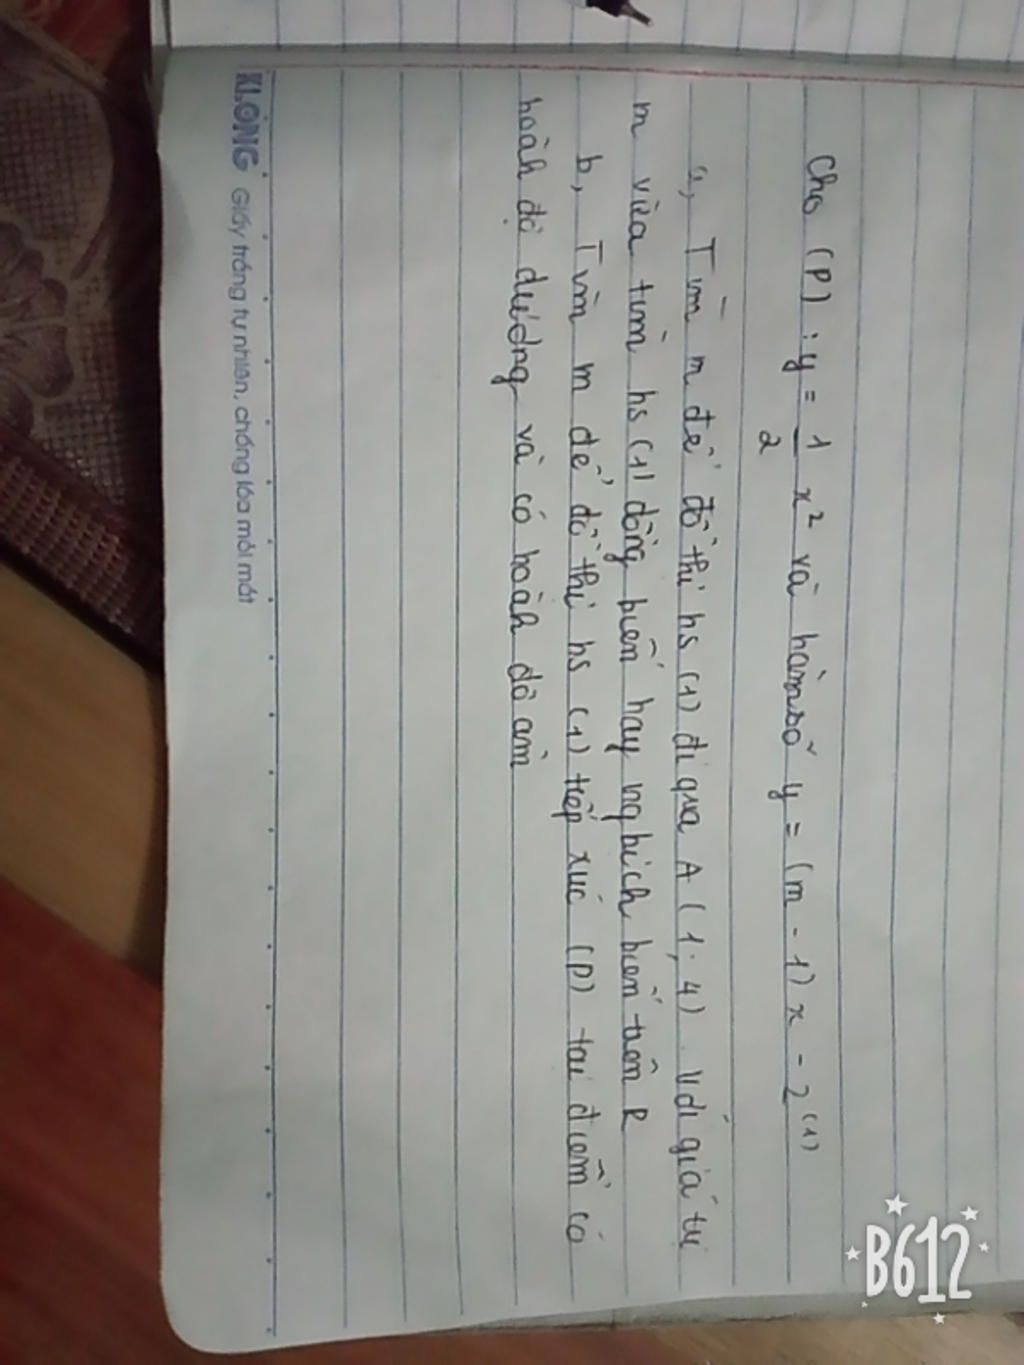 Cho (P) : y = 1/2 x² và hàm số y = (m - 1) x - 2 (1)
a, Tìm m để đồ thị hs (1) đi qua A (1; 4). Với giá trị
m vừa tìm hs (1) đồng biến hay nghịch biến trên R
b, Tìm m để đồ thị hs (1) tiếp xúc (P) tại điểm có
hoành độ dương và có hoành độ âm
KLONG Giấy trắng tự nhiên, chống lóa mỏi mắt
B612